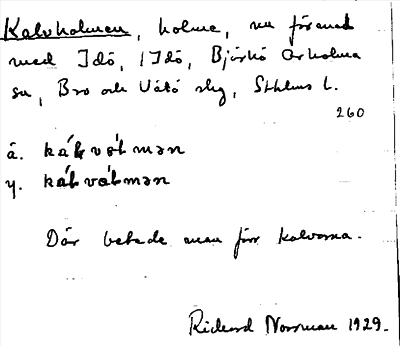 Kalvholmen, holme, nu förenad
med Idö, (Idö, Björkö Arholma
sn, Bro och Vätö skg, Sthlms l.
260
ä. kálvól mən
y. kálvólmən
Där betade man förr kalvarna.
Rickard Norrman 1929.